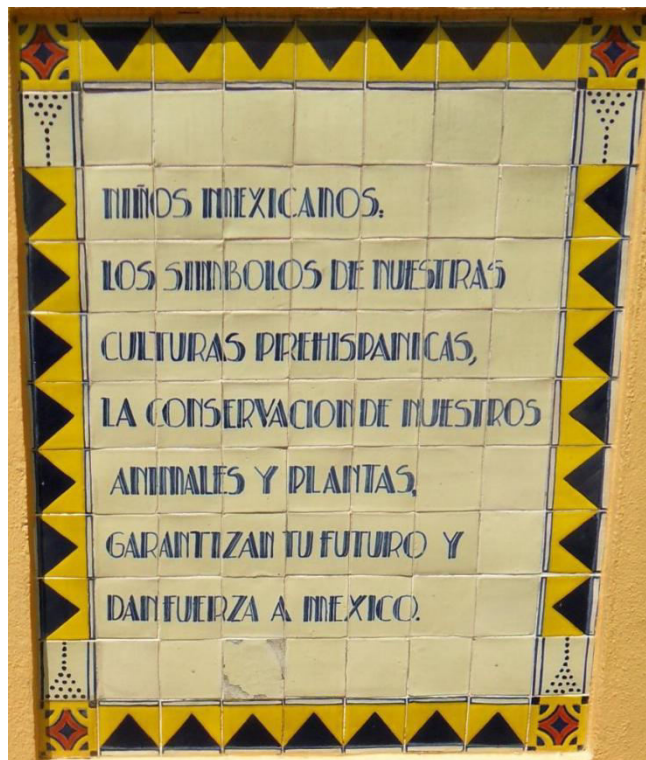 NIÑOS MEXICANOS:
LOS SIMBOLOS DE NUESTRAS
CULTURAS PREHISPANICAS,
LA CONSERVACION DE NUESTROS
ANIMALES Y PLANTAS,
GARANTIZAN TU FUTURO Y
DAN FUERZA A MEXICO.